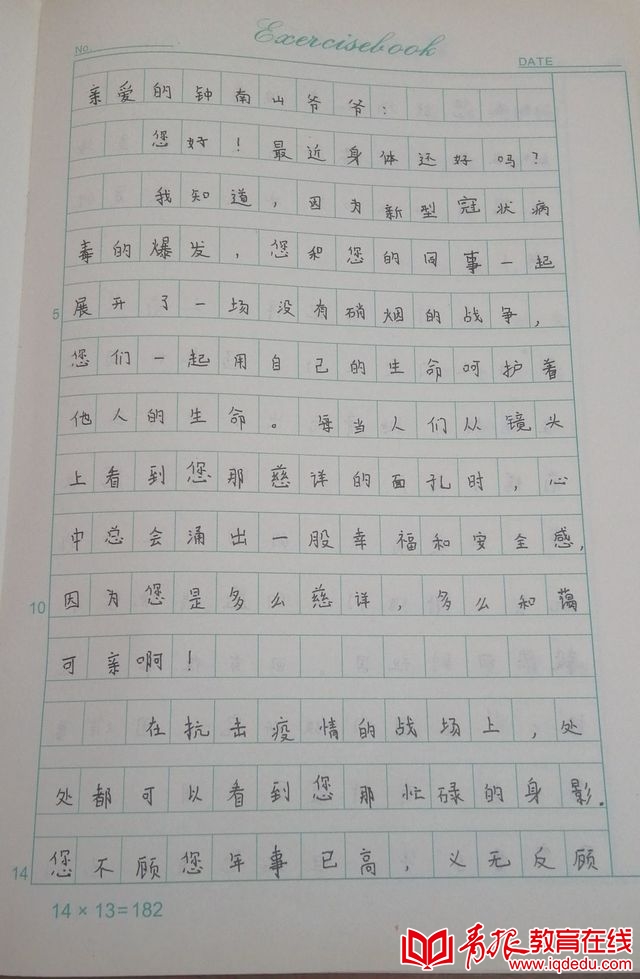 Exercisebook
No.
DATE
亲爱的钟南山爷爷：
您好！最近身体还好吗？
我知道，因为新型冠状病
毒的爆发，您和您的同事一起
5
展开了一场没有硝烟的战争，
您们一起用自己的生命呵护着
他人的生命。每当人们从镜头
上看到您那慈详的面孔时，心
中总会涌出一股幸福和安全感，
10
因为您是多么慈详，多么和蔼
可亲啊！
在抗击疫情的战场上，处
处都可以看到您那忙碌的身影．
14
您不顾您年事已高，义无反顾
14×13=182
青报教育在线
www.iqdedu.com